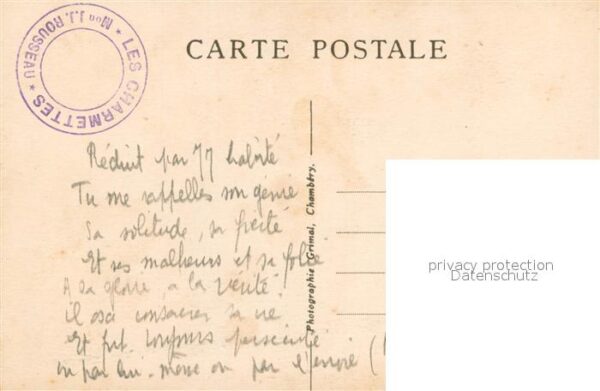 LES CHARMETTES * Mon J.J. ROUSSEAU *
CARTE POSTALE
Réduit par JJ habité
Tu me rappelles son genie
Sa solitude, sa fierté
Et ses malheurs et sa folie
A sa gloire, à la vérité
il osa consacrer sa vie
Et fut toujours persécuté
ou par lui-même ou par l'envie (
Photographie Grimal, Chambéry.
privacy protection
Datenschutz